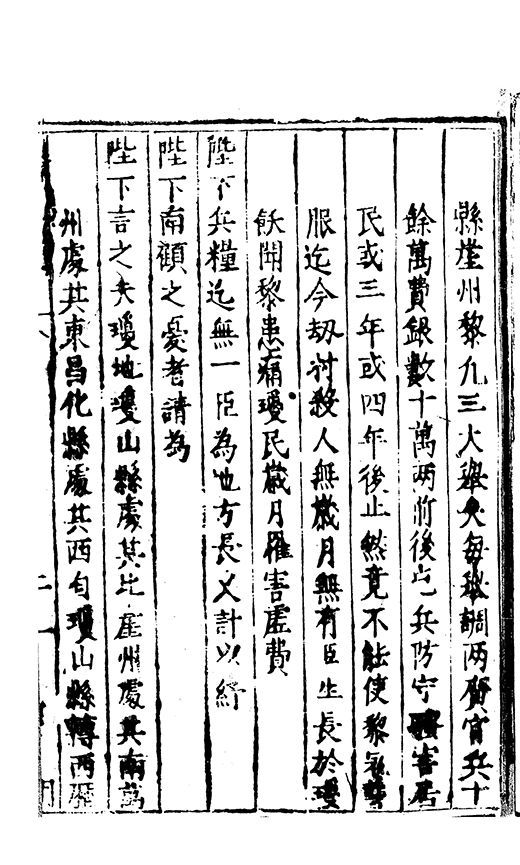 縣崖州黎凡三大舉矣每秋調两廣官兵十
餘萬費銀數十萬两前後屯兵防守害居
民或三年或四年後止然竟不能使黎
服迄今刼村殺人無歲月無有臣生長於瓊
飫聞黎患痛瓊民歲月罹害虛費
陛下兵糧迄無一臣為地方長久計以紓
陛下南顧之憂者請為
陛下言之夫瓊地瓊山縣處其北崖州處其南萬
州處其東昌化縣處其西自瓊山縣轉西歷